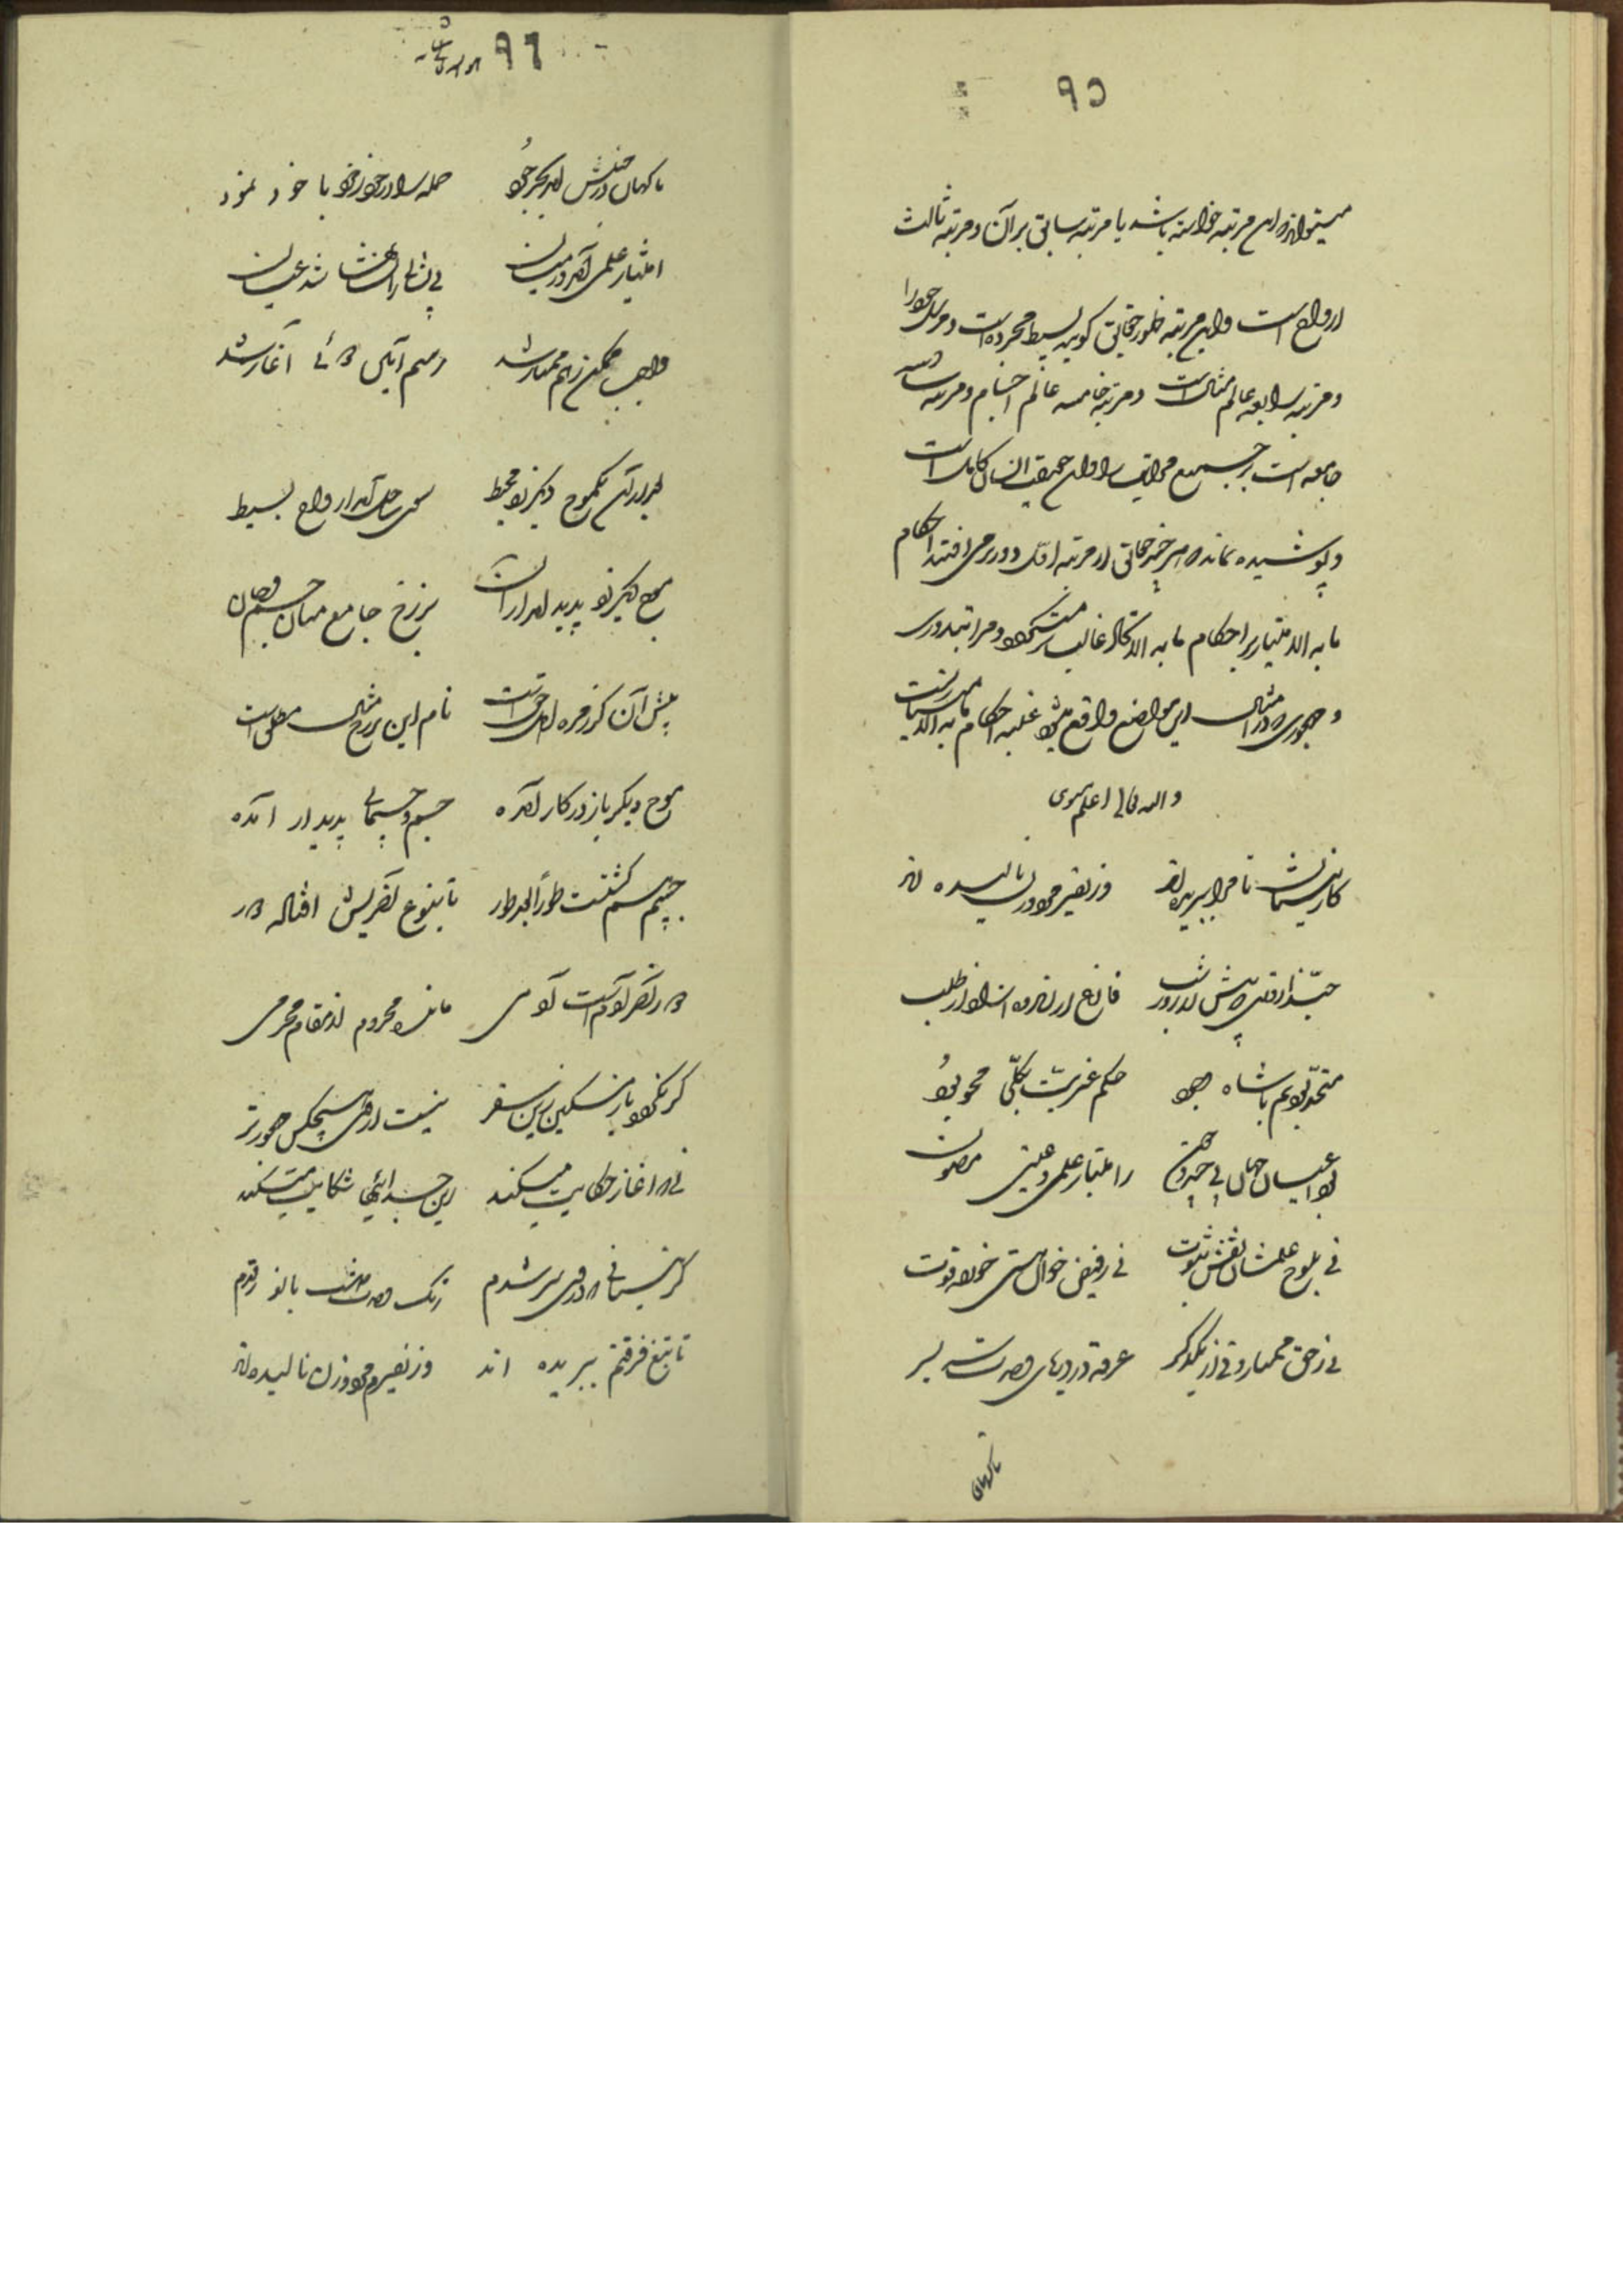 ۹۵
میتواند که این مرتبه خواسته باشد یا مرتبه سابق بر آن و مرتبه ثالث
ارواح است و این مرتبه ظهور حقایق کونیه بسیط مجرده است
و مرتبه رابعه عالم مثال است و مرتبه خامسه عالم اجسام و مرتبه سادسه
جامعه است بر جمیع مراتب را و آن حقیقت انسان کامل است
و پوشیده نماند که هر چند حقایق از مرتبه اول دورتر می افتند احکام
ما به الامتیاز بر احکام ما به الاتحاد غالب میشود و مراد بدوری
و مهجوری که در امثال این مواضع واقع میشود غلبه احکام ما به الامتیاز است
والله تعالی اعلم مثنوی
کز نیستان تا مرا ببریده اند وز نفیرم مرد و زن نالیده اند
حبذا روزی که پیش از روز و شب فارغ از اندوه و آزاد از طلب
متحد بودیم با شاه وجود حکم غیریت بکلی محو بود
بود اعیان جهان بی چند و چون ز امتیاز علمی و عینی مصون
نی بلوح علمشان نقش ثبوت نی ز فیض خوان هستی خورده قوت
نی ز حق ممتاز و نی از یکدگر غرقه در دریای وحدت سر بسر
ناگهان
۹۶
ناگهان در جنبش آمد بحر جود جمله را در خود ز خود با خود نمود
امتیاز علمی آمد در میان بی نشانی را نشانها شد عیان
واجب و ممکن ز هم ممتاز شد رسم آیین دوئی آغاز شد
بعد از آن یکموج دیگر زد محیط سوی ساحل آمد ارواح بسیط
موج دیگر زد پدید آمد از آن برزخ جامع میان جسم و جان
پیش آن کز زمره اهل حق است نام این برزخ مثال مطلق است
موج دیگر باز در کار آمده جسم و جسمانی پدیدار آمده
جسم هم گشتست طورا بعد طور تا بنوع آخرش افتاده دور
نوع آخر آدم است و آدمی مانده محروم از مقام محرمی
گر نگردد باز مسکین زین سفر نیست از وی هیچکس مهجورتر
نی که آغاز حکایت میکند زین جدائیها شکایت میکند
کز نیستانی که در وی هر عدم رنگ وحدت داشت با نور قدم
تا بتیغ فرقتم ببریده اند وز نفیرم مرد و زن نالیده اند